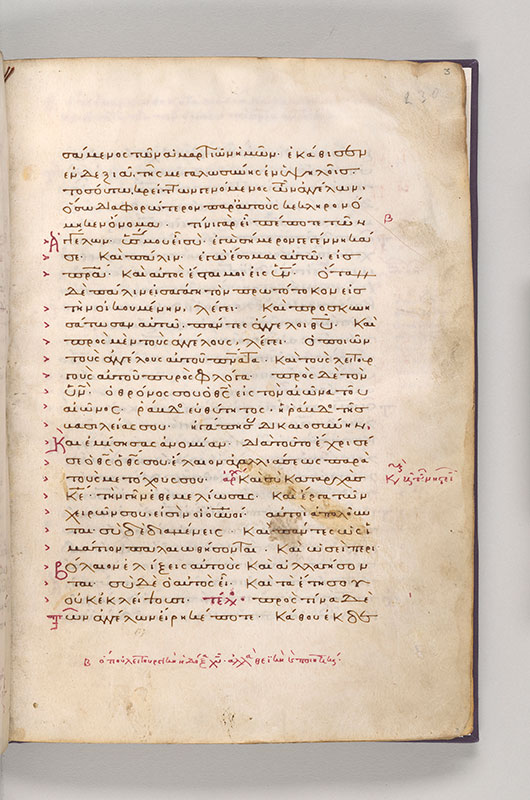 3
230
σάμενος τῶν ἁμαρτιῶν ἡμῶν· ἐκάθισεν
ἐν δεξιᾷ τῆς μεγαλωσύνης ἐν ὑψηλοῖς·
τοσούτω κρείττων γενόμενος τῶν ἀγγέλων,
ὅσω διαφορώτερον παρ' αὐτοὺς κεκληρονό
μηκεν ὄνομα· τίνι γὰρ εἶπέ ποτε τῶν
β
ἀγγέλων· υἱός μου εἶ σύ· ἐγὼ σήμερον γεγέννηκά
σε· Καὶ πάλιν· ἐγὼ ἔσομαι αὐτῶ, εἰς
πρα· Καὶ αὐτὸς ἔσται μοι εἰς υν· Ὅταν
δὲ πάλιν εἰσαγάγη τὸν πρωτότοκον εἰς
τὴν οἰκουμένην, λέγει· Καὶ προσκυνη
σάτωσαν αὐτῶ, πάντες ἄγγελοι θυ· Καὶ
πρὸς μὲν τοὺς ἀγγέλους, λέγει· Ὁ ποιῶν
τοὺς ἀγγέλους αὐτοῦ πνατα· Καὶ τοὺς λειτουρ
γοὺς αὐτοῦ πυρὸς φλόγα· πρὸς δὲ τὸν
υν· ὁ θρόνος σου ὁ θς εἰς τὸν αἰῶνα τοῦ
αἰῶνος· ῥάβδος εὐθύτητος· ἡ ῥάβδος τῆς
βασιλείας σου· ἠγάπησας δικαιοσύνην,
Καὶ ἐμίσησας ἀνομίαν· Διατοῦτο ἔχρισέ
σε ὁ θς ὁ θς σου ἔλαιον ἀγαλλιάσεως παρὰ
τοὺς μετόχους σου· ἀρχ Καὶ σὺ κατ' ἀρχὰς
κε· τὴν γῆν ἐθεμελίωσας· Καὶ ἔργα τῶν
χειρῶν σου, εἰσὶν οἱ οὐνοι· αὐτοὶ ἀπολοῦν
ται· σὺ δὲ διαμένεις· Καὶ πάντες ὡς ἱ
μάτιον παλαιωθήσονται· Καὶ ὡσεὶ περι
βόλαιον ἑλίξεις αὐτοὺς Καὶ ἀλλαγήσον
ται· σὺ δὲ ὁ αὐτὸς εἶ· Καὶ τὰ ἔτη σου
οὐκ ἐκλείψουσι· τέλος· πρὸς τίνα δὲ
τῶν ἀγγέλων εἴρηκέ ποτε· Κάθου ἐκ δε
β